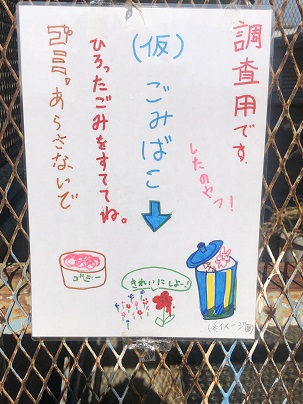 調査用です。
したのやつ!
(仮)ごみばこ
ひろったごみをすててね。
あらさないで
きれいにしよー!
ゴミー
(※イメージ図)